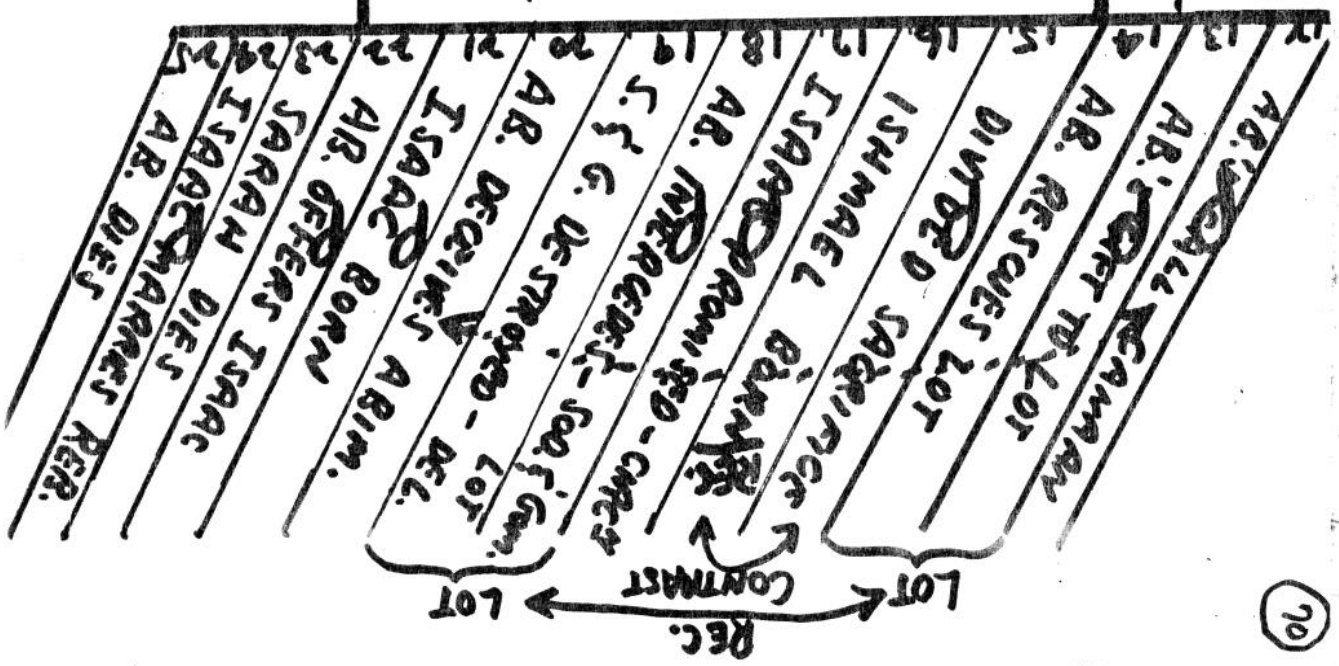 12 AB.'S CALL CANAAN
13 AB.'S GIFT TO LOT
14 AB. RESCUES LOT
15 DIVIDED SACRIFICE
16 ISHMAEL BORN
17 ISAAC PROMISED - CIRC
18 AB. INTERCEDES - SOD. & GOM.
19 S. & G. DESTROYED - LOT DEL.
20 AB. DECEIVES ABIM.
21 ISAAC BORN
22 AB. OFFERS ISAAC
23 SARAH DIES
24 ISAAC MARRIES REB.
25 AB. DIES
LOT
CONTRAST
LOT
REC.